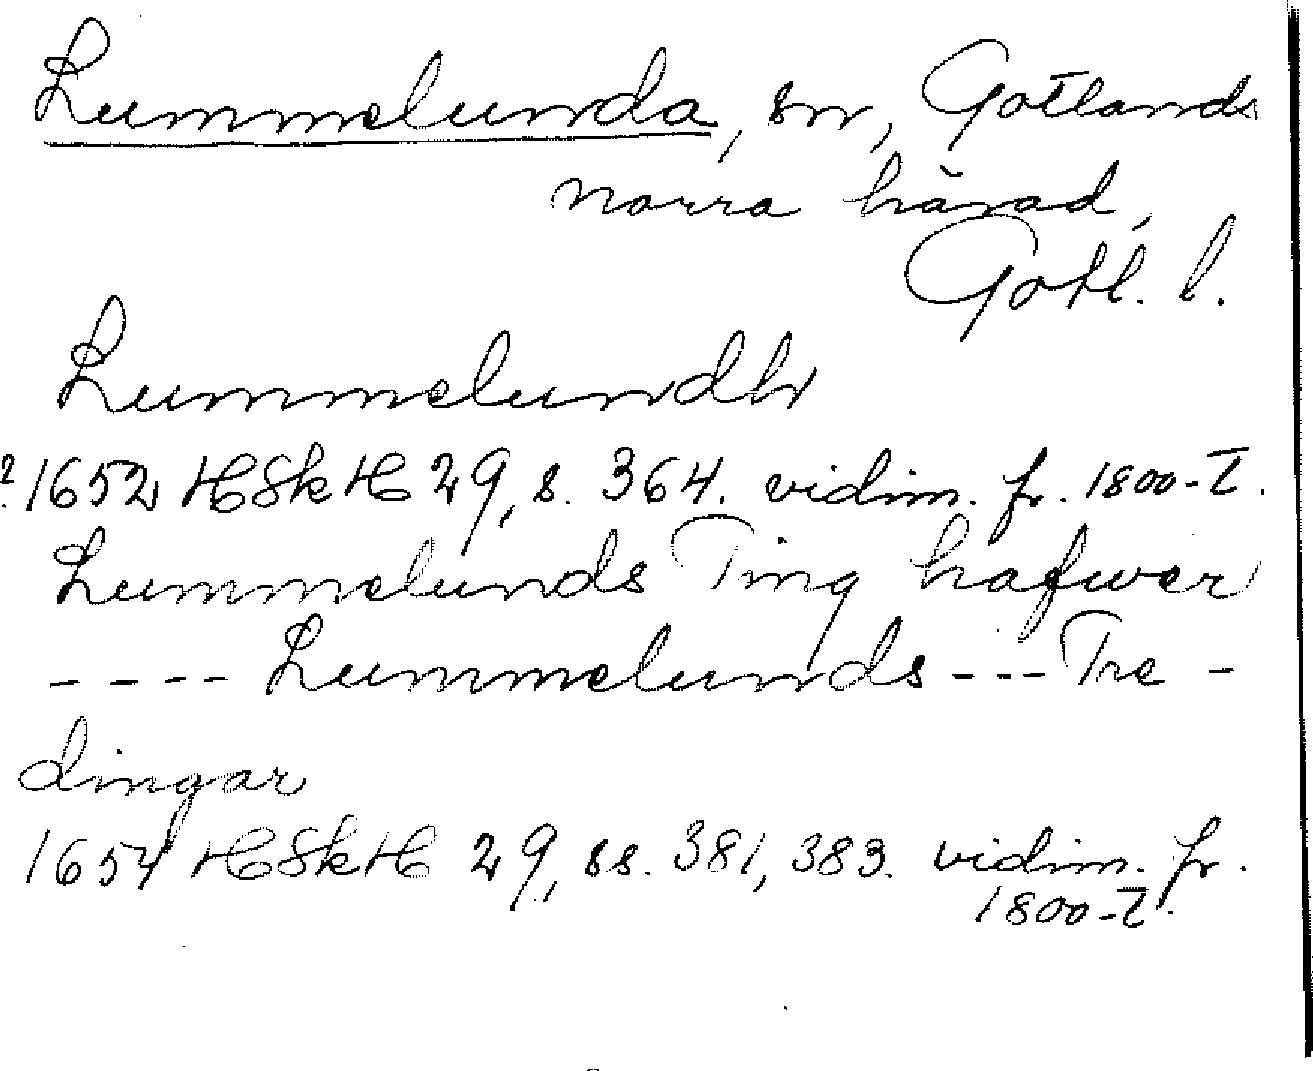 Lummelunda, sn, Gotlands
norra härad,
Gotl. l.
Lummelundh
? 1652 HSkH 29, s. 364. vidim. fr. 1800-t.
Lummelunds Ting hafwer
---- Lummelunds --- Tre-
dingar
1654 HSkH 29, ss. 381, 383. vidim. fr.
1800-t.